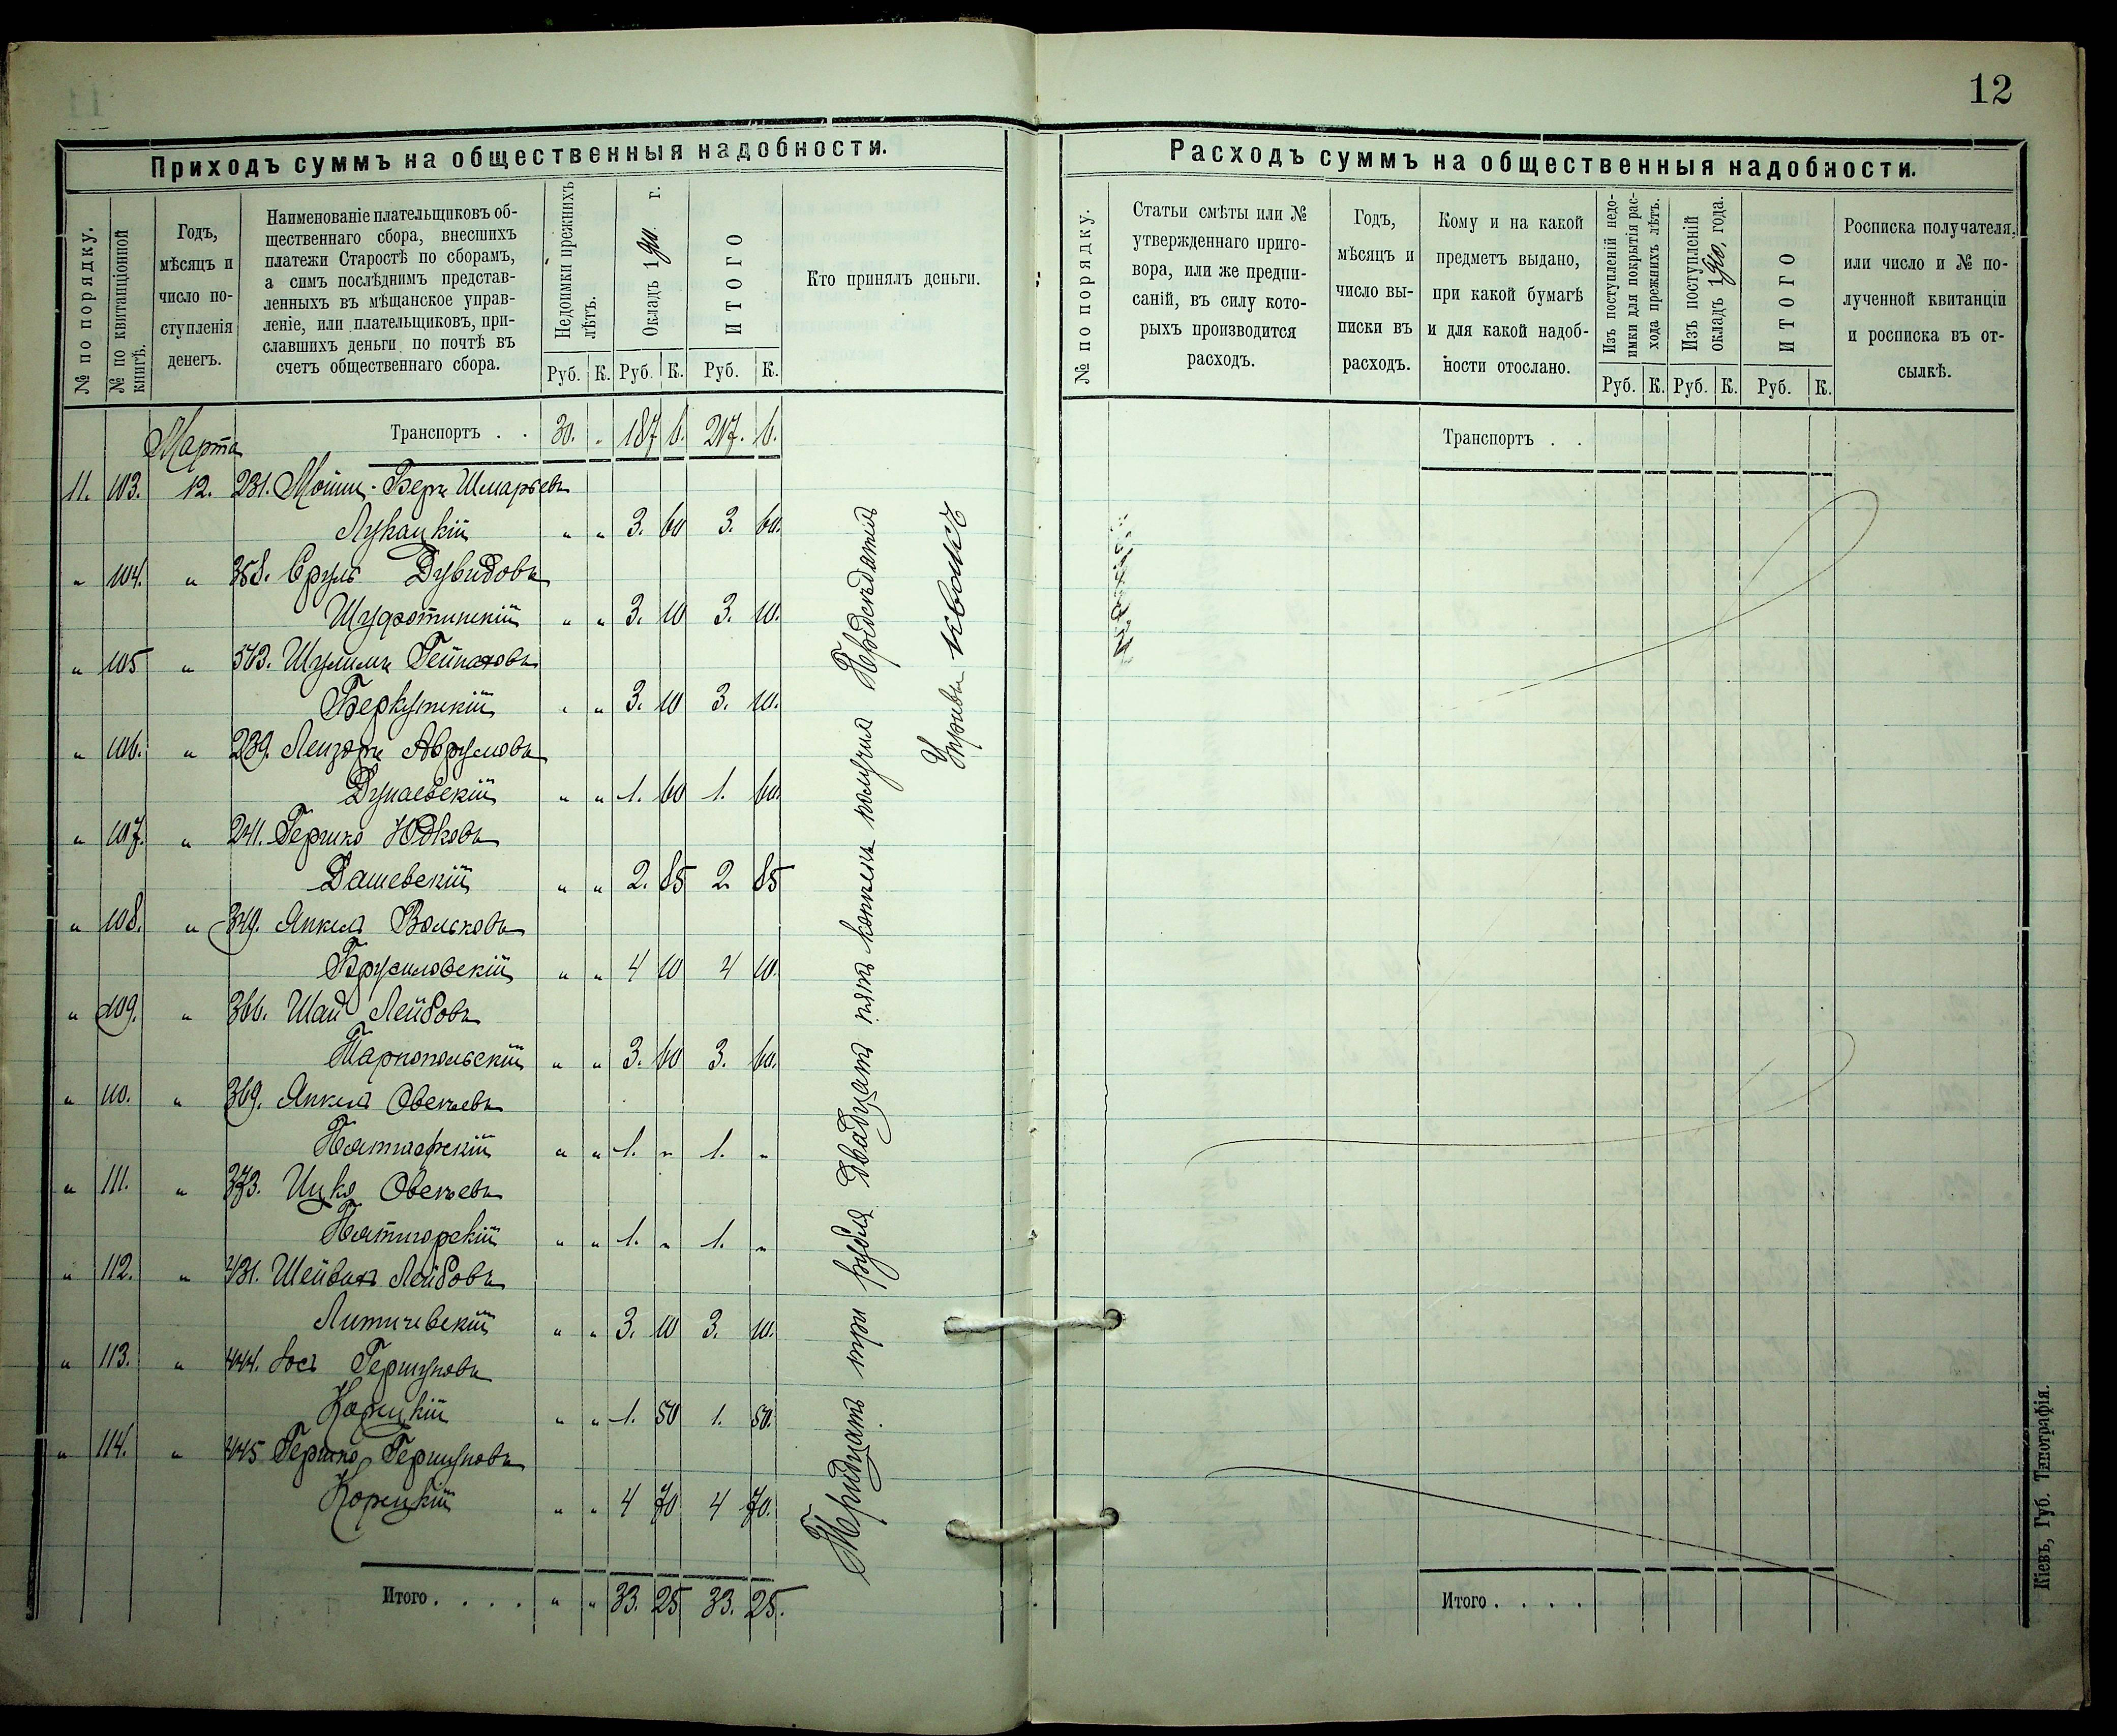 12
Приходъ суммъ на общественныя надобности.
№ по порядку.
№ по квитанціонной
книгѣ.
Годъ,
мѣсяцъ и
число по-
ступленія
денегъ.
Наименованіе плательщиковъ об-
щественнаго сбора, внесшихъ
платежи Старостѣ по сборамъ,
а симъ послѣднимъ представ-
ленныхъ въ мѣщанское управ-
леніе, или плательщиковъ, при-
славшихъ деньги по почтѣ въ
счетъ общественнаго сбора.
Недоимки прежнихъ
лѣтъ.
Окладъ 1910 г.
ИТОГО
Кто принялъ деньги.
Руб. К. Руб. К. Руб. К.
Транспортъ . . 30. „ 187 6. 217. 6.
Марта
11. 103. 12. 231. Мошко-Беръ Шмарьевъ
Лукацкій „ „ 3. 60 3. 60.
„ 104. „ 358. Сруль Дувидовъ
„ „ 3. 10 3. 10.
„ 105 „ 573. Шулимъ
Беркунскій „ „ 3. 10 3. 10.
„ 106. „ 239. Лейзоръ Аврумовъ
Дунаевскій „ „ 1. 60 1. 60.
„ 107. „ 241. Гершко Юдковъ
Дашевскій „ „ 2. 85 2. 85
„ 108. „ 349. Янкель Вольковъ
Брусиловскій „ „ 4 10 4 10.
„ 109. „ 366. Шая Лейбовъ
Тарнопольскій „ „ 3. 60 3. 60.
„ 110. „ 369. Янкель Овсеевъ
Пятигорскій „ „ 1. „ 1. „
„ 111. „ 373. Ицко Овсеевъ
Пятигорскій „ „ 1. „ 1. „
„ 112. „ 431. Лейбовъ
Литичевскій „ „ 3. 10 3. 10.
„ 113. „ 444. Іось Гершуновъ
Корицкій „ „ 1. 50 1. 50.
„ 114. „ 445 Гершко Гершуновъ
Корицкій „ „ 4 70 4 70.
Итого . . . . „ „ 33. 25 33. 25.
Тридцать три рубля двадцать пять копѣекъ получилъ Предсѣдатель
Управы
Расходъ суммъ на общественныя надобности.
№ по порядку.
Статьи смѣты или №
утвержденнаго приго-
вора, или же предпи-
саній, въ силу кото-
рыхъ производится
расходъ.
Годъ,
мѣсяцъ и
число вы-
писки въ
расходъ.
Кому и на какой
предметъ выдано,
при какой бумагѣ
и для какой надоб-
ности отослано.
Изъ поступленій недо-
имки для покрытія рас-
хода прежнихъ лѣтъ.
Изъ поступленій
окладъ 1910, года.
ИТОГО
Росписка получателя,
или число и № по-
лученной квитанціи
и росписка въ от-
сылкѣ.
Руб. К. Руб. К. Руб. К.
Транспортъ . .
Итого . . . .
Кіевъ, Губ. Типографія.